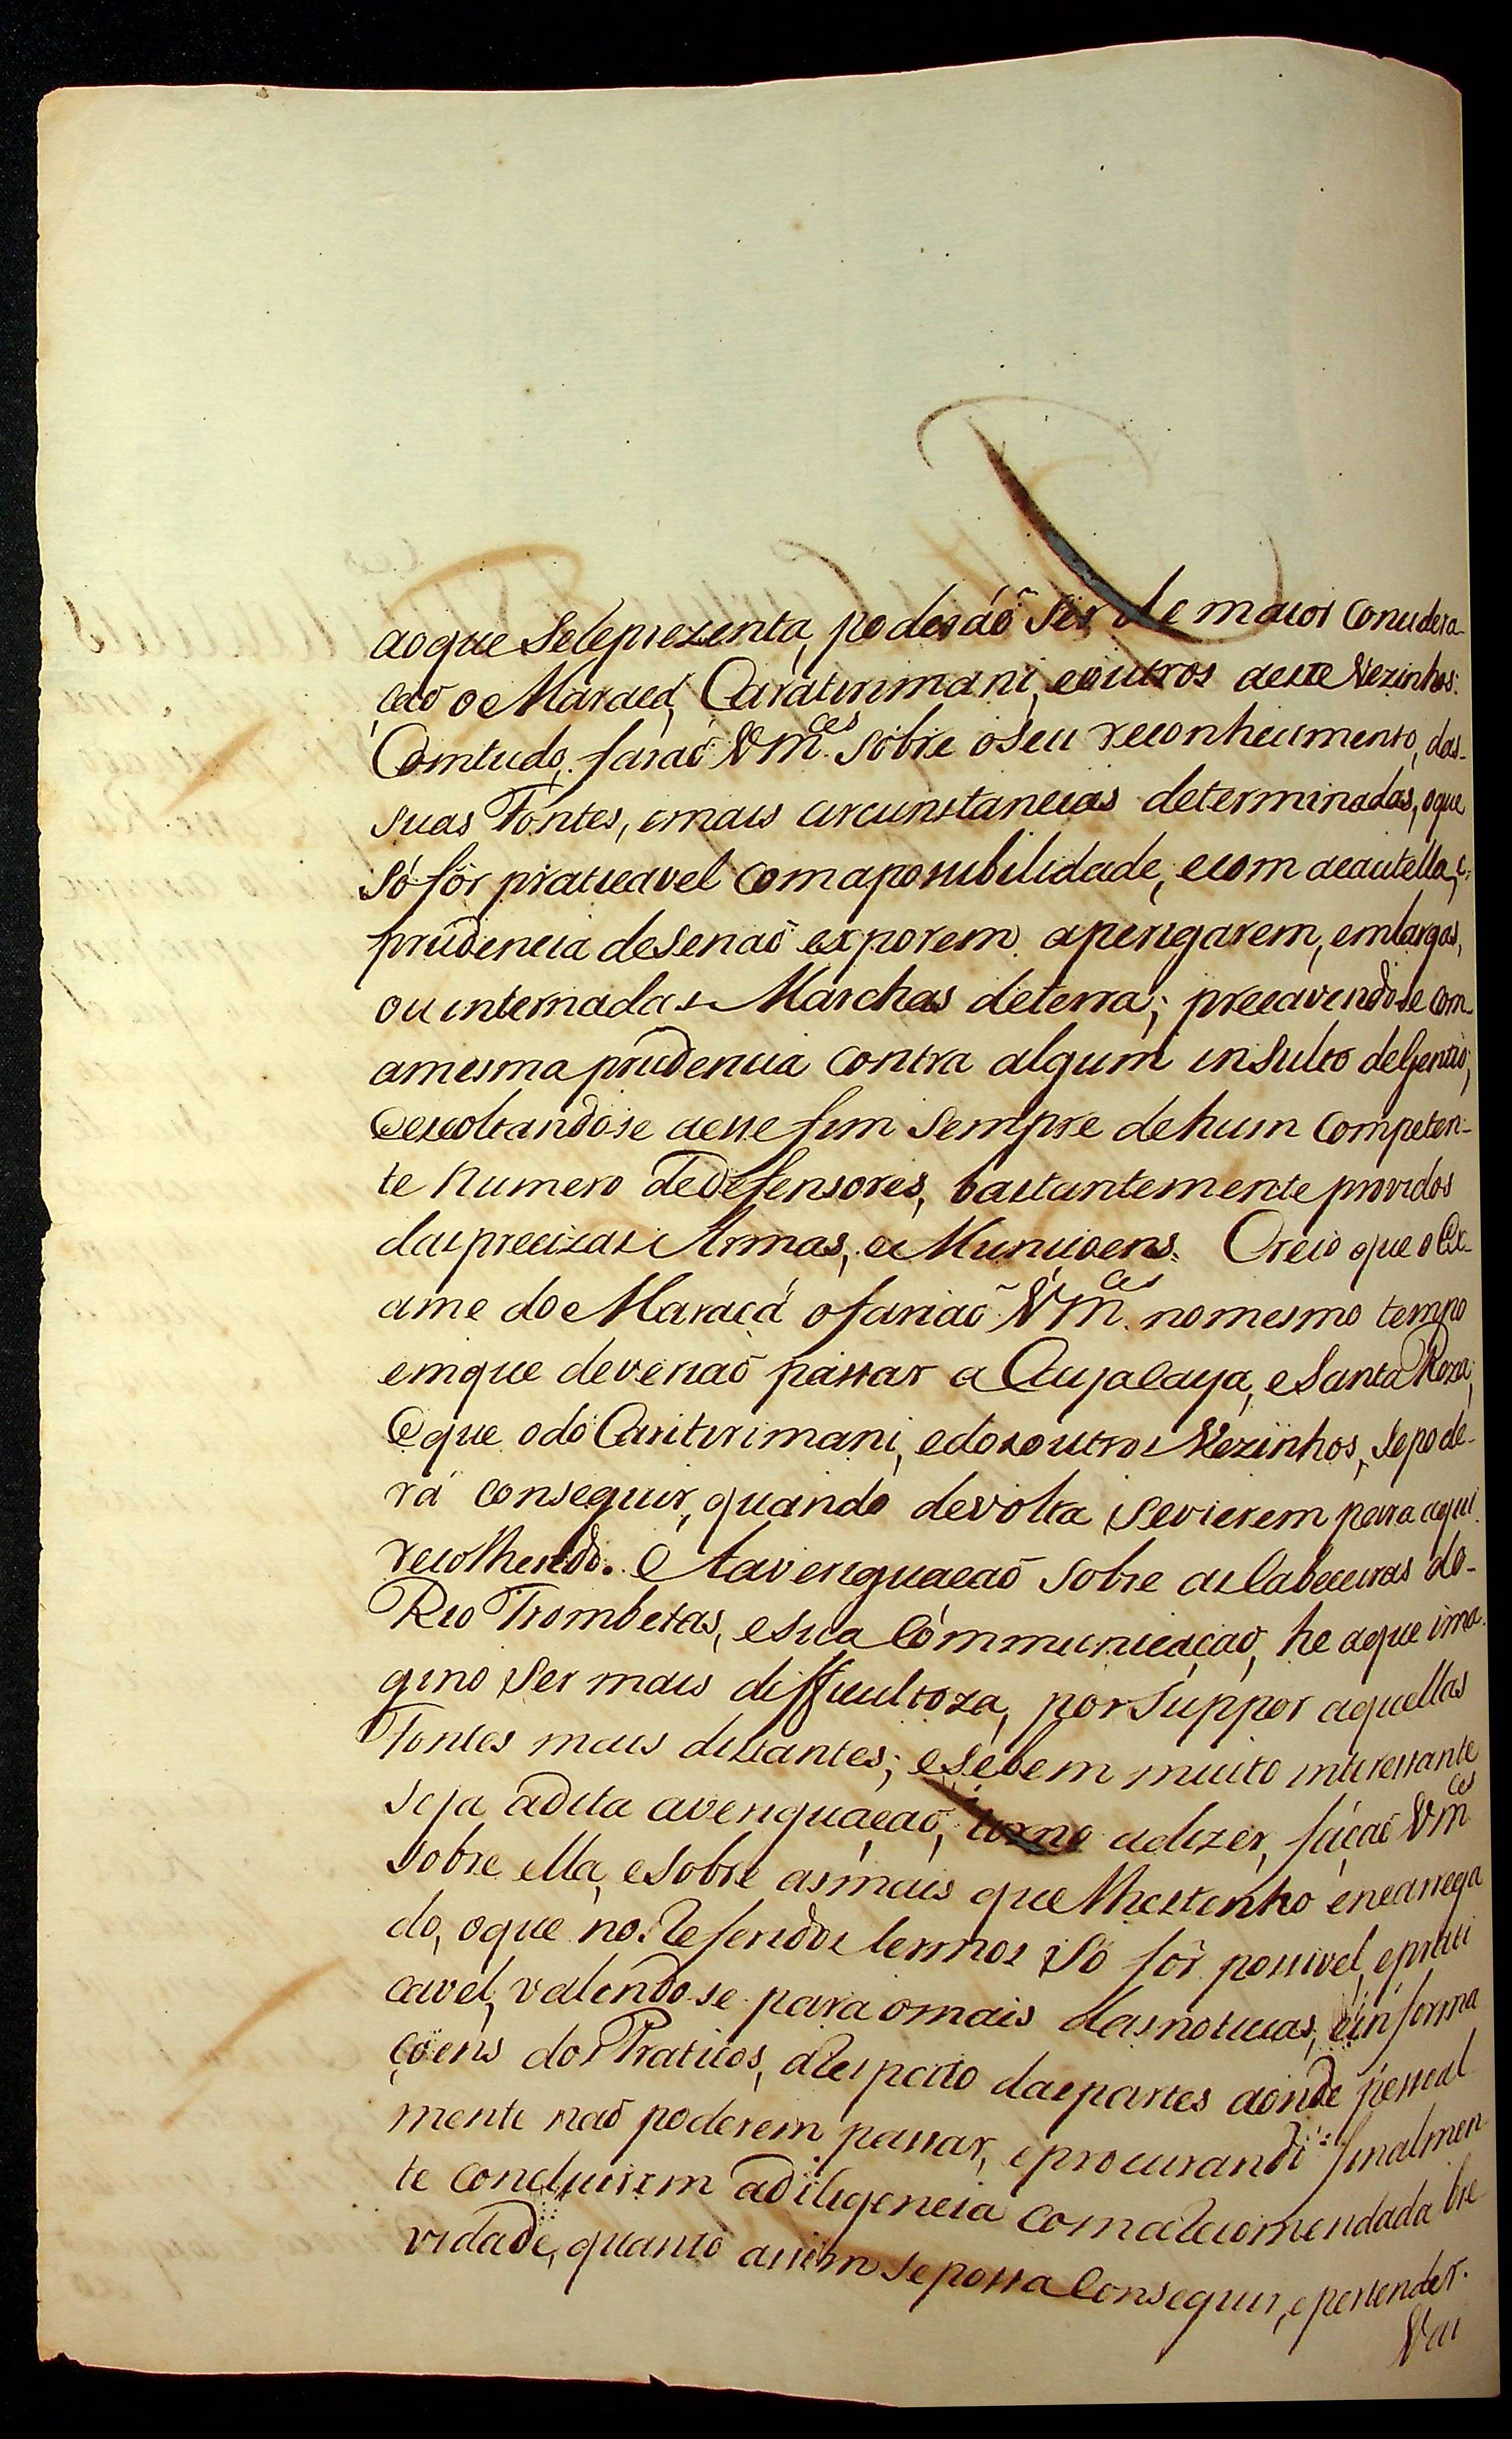 aoque Se reprezenta, poderáõ Ser de maior Considera-
çaõ o Maracá, Caratirimani, eoutros deste Vezinhos.
Comtudo, faraõ Vm.ces sobre oseu reconhecimento, das
suas Fontes, emais circunstancias determinadas, oque
só fôr praticavel comaposibilidade, ecom acautella, e
prudencia deSenaõ exporem aperigarem, emlargas,
ou internadas Marchas deterra; precavendose com
amesma prudencia contra algum insulto deGentio;
Eescoltandose aesse fim Sempre dehum Competen-
te Numero deDefensores, bastantemente providos
dasprecizas Armas, e Muniçoens. Creio que oEx-
ame do Maracá ofariaõ Vm.ces nomesmo tempo
emque deveriaõ passar a Cujalaya, eSanta Roza;
Eque odo Caritirimani, edosoutros Vezinhos, Sepode-
rá conseguir, quando devolta Sevierem para aqui
recolhendo. A averiguaçaõ sobre as Cabeceiras do
Rio Trombetas, esua Communicaçaõ, he aque ima-
gino Ser mais difficultoza, porSuppor aquellas
Fontes mais distantes; eSebem muito interessante
seja adita averiguaçaõ, torno adizer, façaõ Vm.ces
sobre ella, eSobre asmais que lhestenho encarrega
do, oque nosReferidos termos Só fôr possivel, eprati
cavel, valendo-se para omais dasnoticias, einforma
çoens dos Praticos, aRespeito daspartes aonde pessoal
mente naõ poderem passar, eprocurando finalmen
te concluirem adiligencia comaRecomendada bre
vidade, quanto assim Sepossa Conseguir, epertender.
Vai